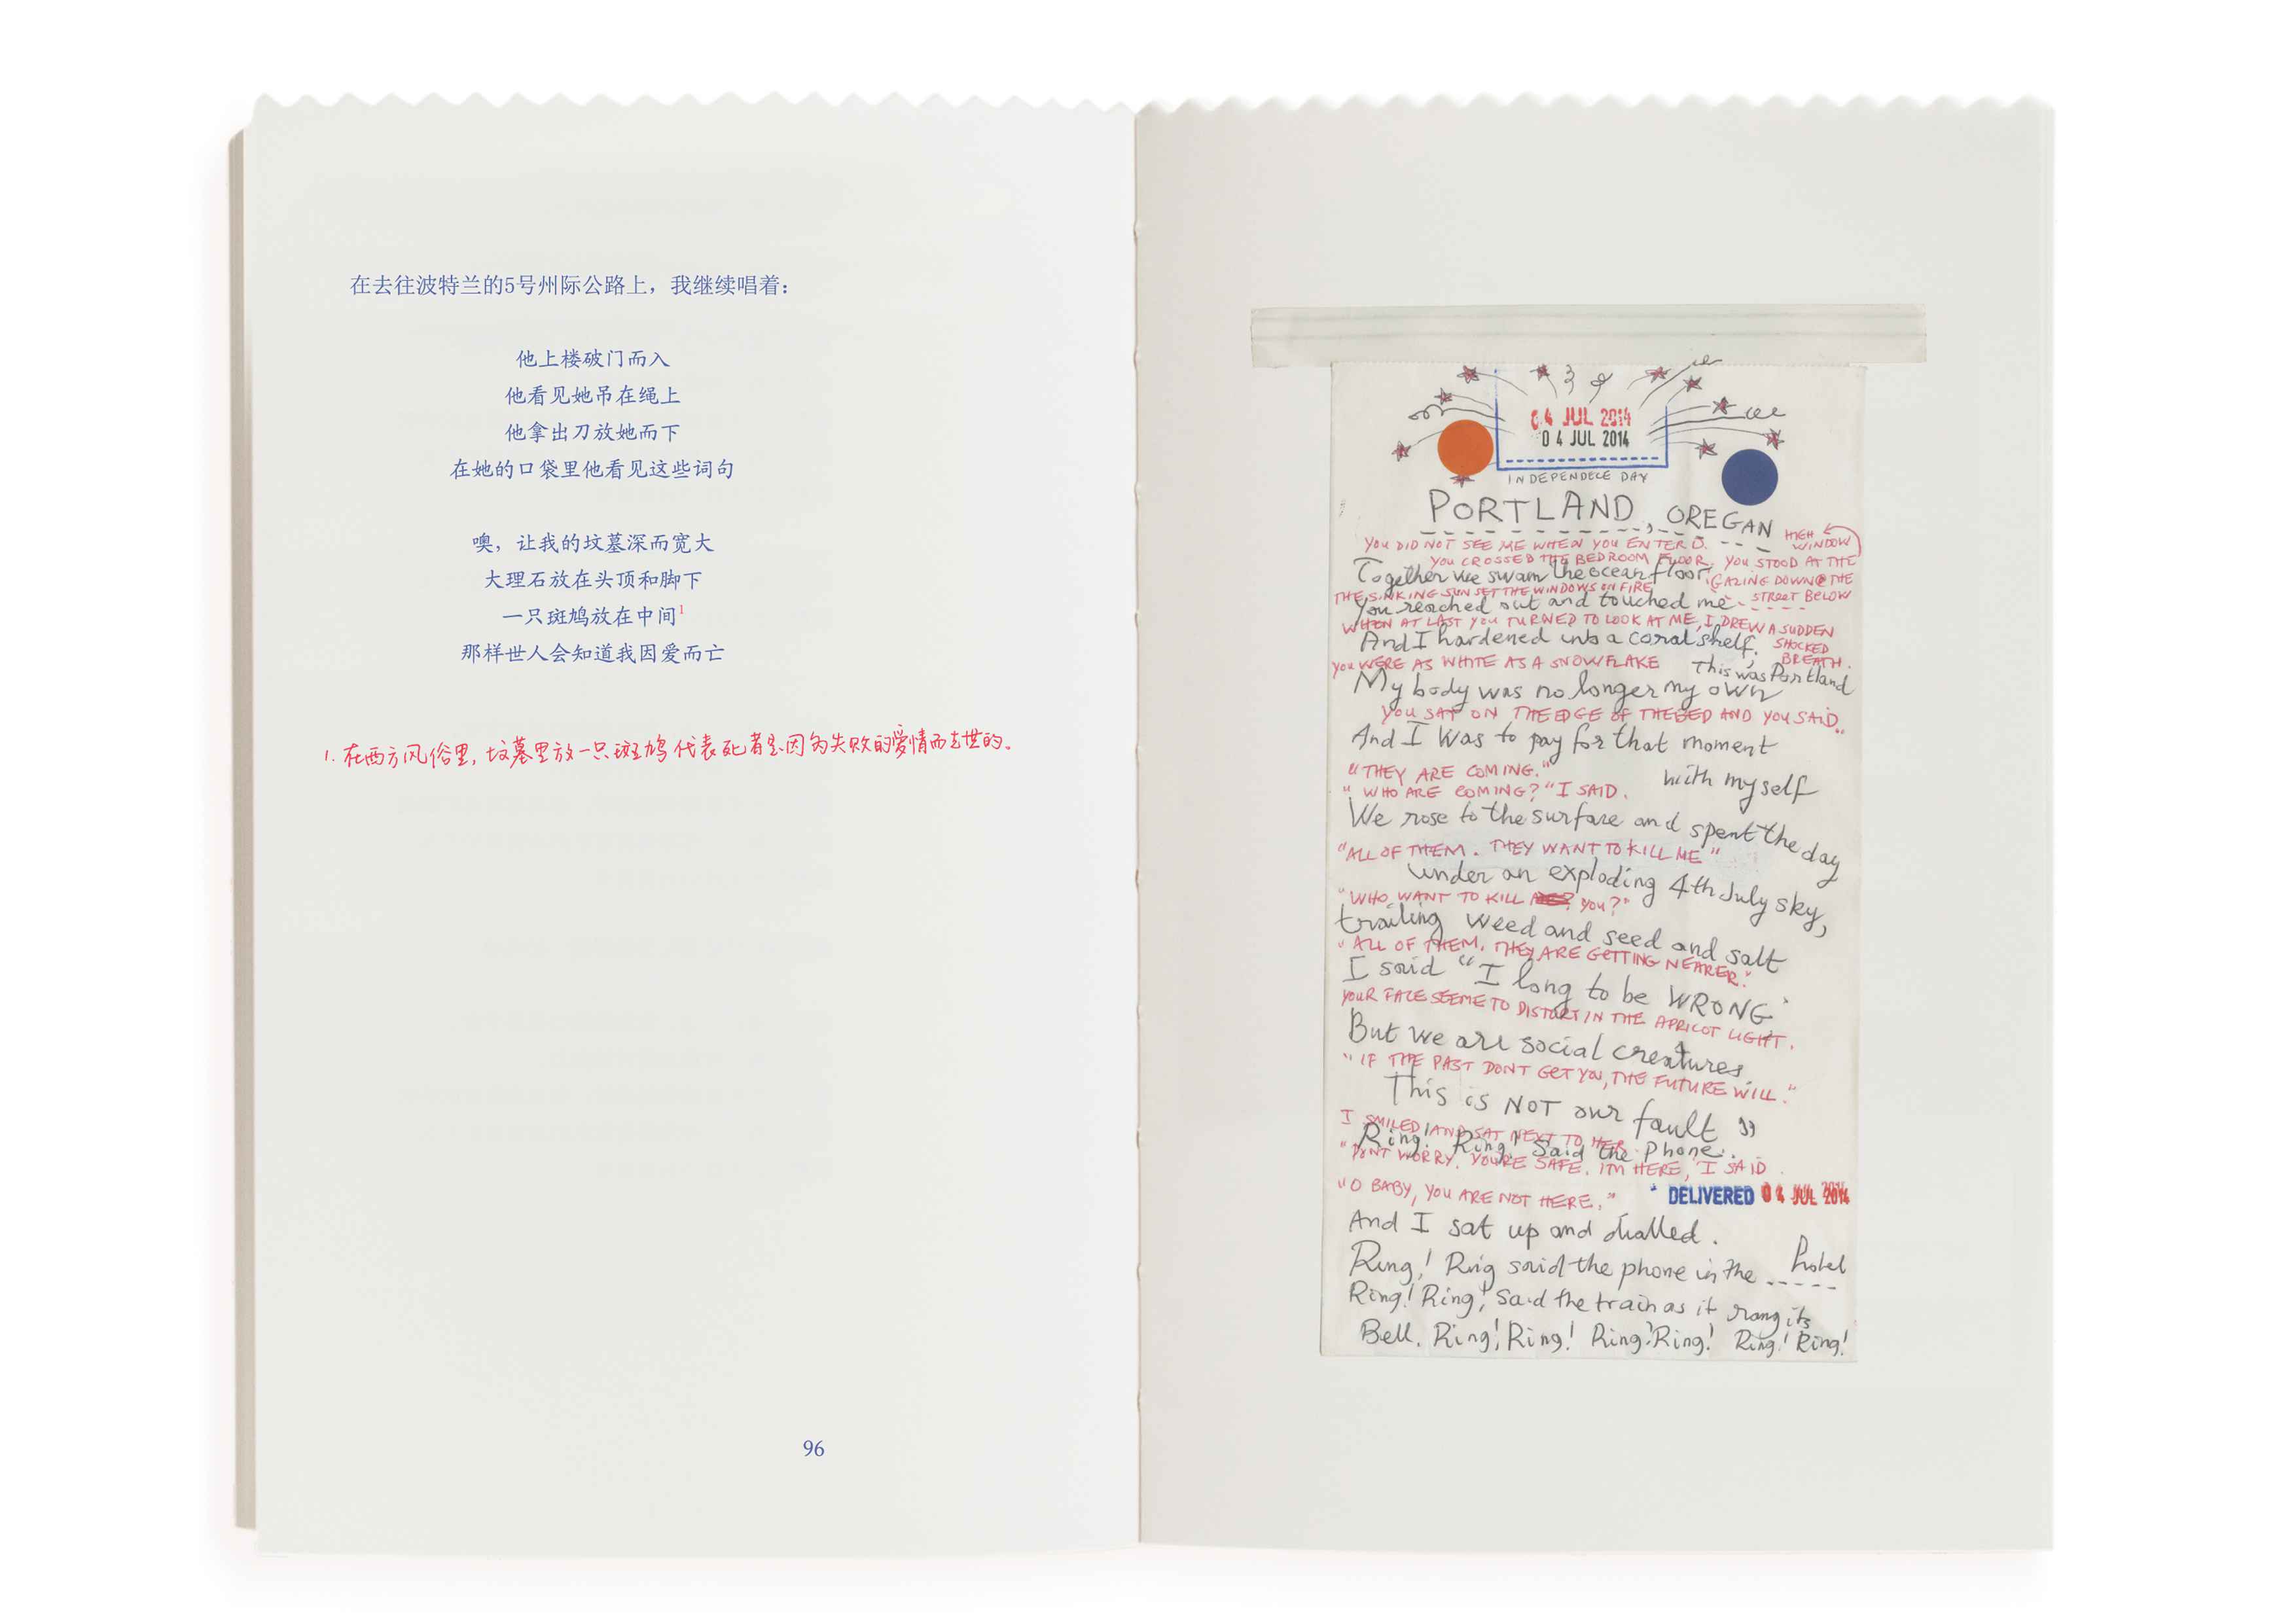 在去往波特兰的5号州际公路上，我继续唱着：
他上楼破门而入
他看见她吊在绳上
他拿出刀放她而下
在她的口袋里他看见这些词句
噢，让我的坟墓深而宽大
大理石放在头顶和脚下
一只斑鸠放在中间1
那样世人会知道我因爱而亡
1. 在西方风俗里，坟墓里放一只斑鸠代表死者是因为失败的爱情而去世的。
96
04 JUL 2014
04 JUL 2014
INDEPENDECE DAY
PORTLAND, OREGAN
HIGH WINDOW
YOU DID NOT SEE ME WHEN YOU ENTERD.
YOU CROSSED THE BEDROOM FLOOR, YOU STOOD AT THE
Together we swam the ocean floor,
GAZING DOWN @ THE
THE SINKING SUN SET THE WINDOWS ON FIRE
STREET BELOW
You reached out and touched me
WHEN AT LAST YOU TURNED TO LOOK AT ME, I DREW A SUDDEN
And I hardened into a coral shelf.
SHOCKED BREATH.
YOU WERE AS WHITE AS A SNOWFLAKE
This was Portland
My body was no longer my own
YOU SAT ON THE EDGE OF THE BED AND YOU SAID..
And I was to pay for that moment
"THEY ARE COMING."
with myself
"WHO ARE COMING?" I SAID.
We rose to the surface and spent the day
"ALL OF THEM. THEY WANT TO KILL ME"
under an exploding 4th July sky,
"WHO WANT TO KILL YOU?"
trailing weed and seed and salt
"ALL OF THEM. THEY ARE GETTING NEARER."
I said "I long to be WRONG
YOUR FACE SEEME TO DISTORT IN THE APRICOT LIGHT.
But we are social creatures
"IF THE PAST DONT GET YOU, THE FUTURE WILL."
This is NOT our fault"
I SMILED AND SAT NEXT TO HER
Ring! Ring! Said the Phone.
"DONT WORRY. YOU'RE SAFE. I'M HERE, I SAID.
"O BABY, YOU ARE NOT HERE."
DELIVERED 04 JUL 2014
And I sat up and dialled.
Ring! Ring said the phone in the hotel
Ring! Ring! Said the train as it rang its
Bell. Ring! Ring! Ring! Ring! Ring! Ring!